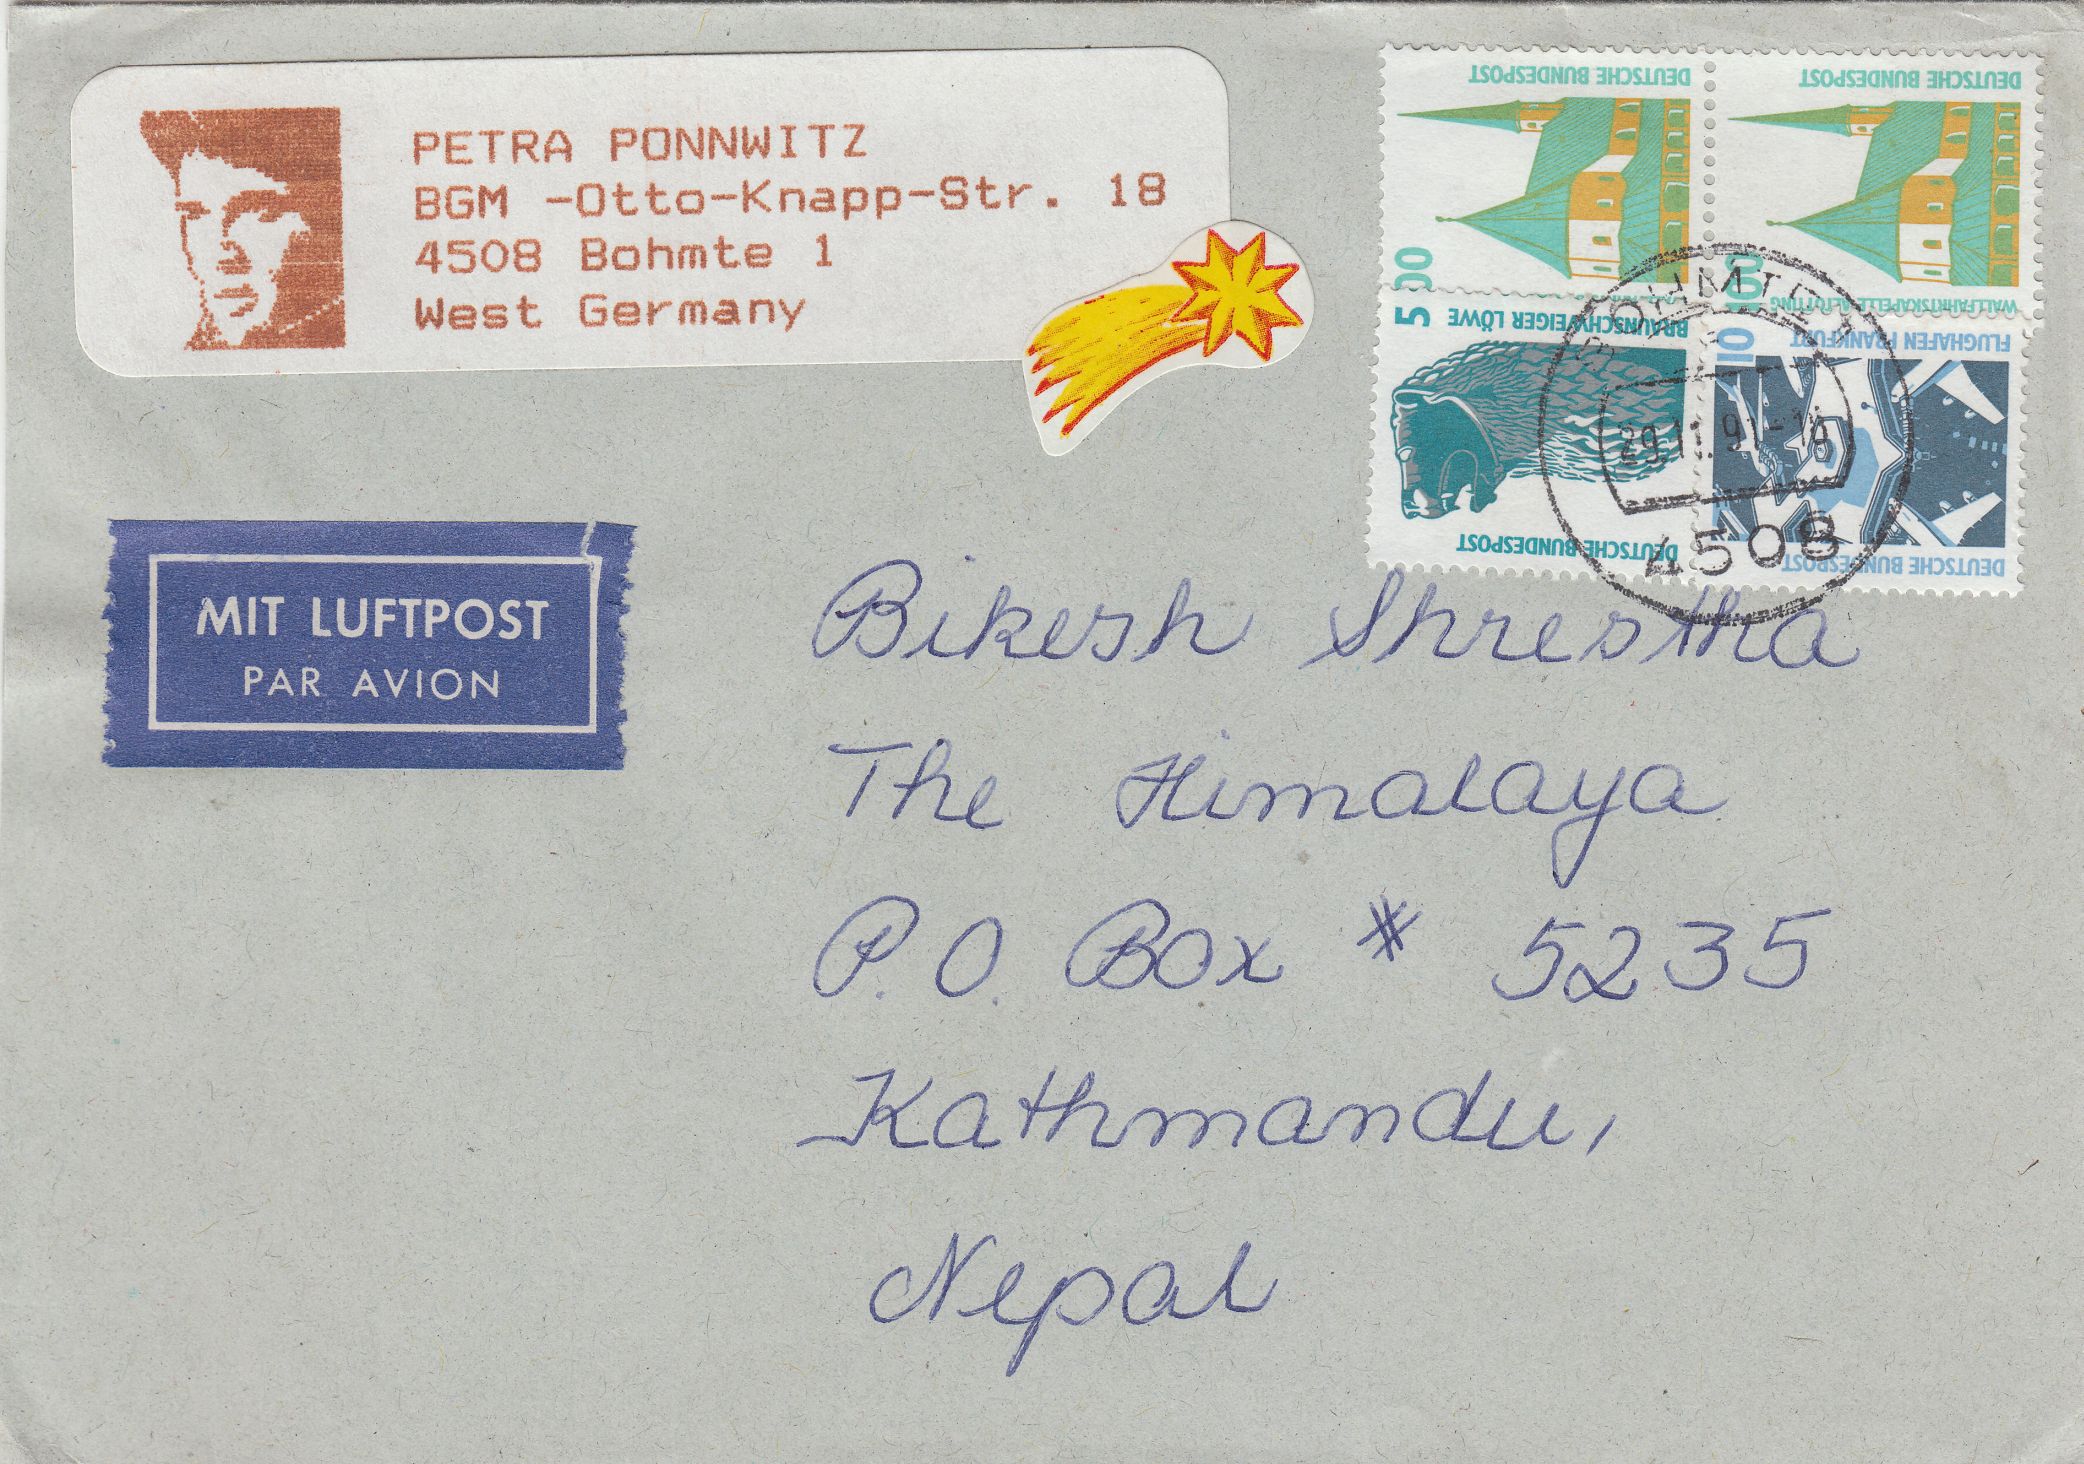 PETRA PONNWITZ
BGM -Otto-Knapp-Str. 18
4508 Bohmte 1
West Germany
DEUTSCHE BUNDESPOST
DEUTSCHE BUNDESPOST
100
WALLFAHRTSKAPELLE ALTÖTTING
00
5
BRAUNSCHWEIGER LÖWE
DEUTSCHE BUNDESPOST
10
FLUGHAFEN FRANKFURT
DEUTSCHE BUNDESPOST
BOHMTE 1
29.11.91-16
4508
MIT LUFTPOST
PAR AVION
Bikesh Shrestha
The Himalaya
P.O. Box # 5235
Kathmandu,
Nepal